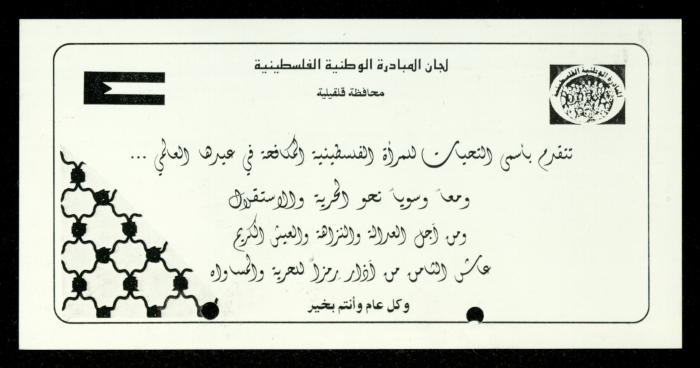 لجان المبادرة الوطنية الفلسطينية
محافظة قلقيلية
المبادرة الوطنية الفلسطينية
تتقدم بأسمى التحيات للمرأة الفلسطينية المكافحة في عيدها العالمي ...
ومعاً وسوياً نحو الحرية والاستقلال
ومن أجل العدالة والنزاهة والعيش الكريم
عاش الثامن من آذار رمزاً للحرية والمساواه
وكل عام وأنتم بخير